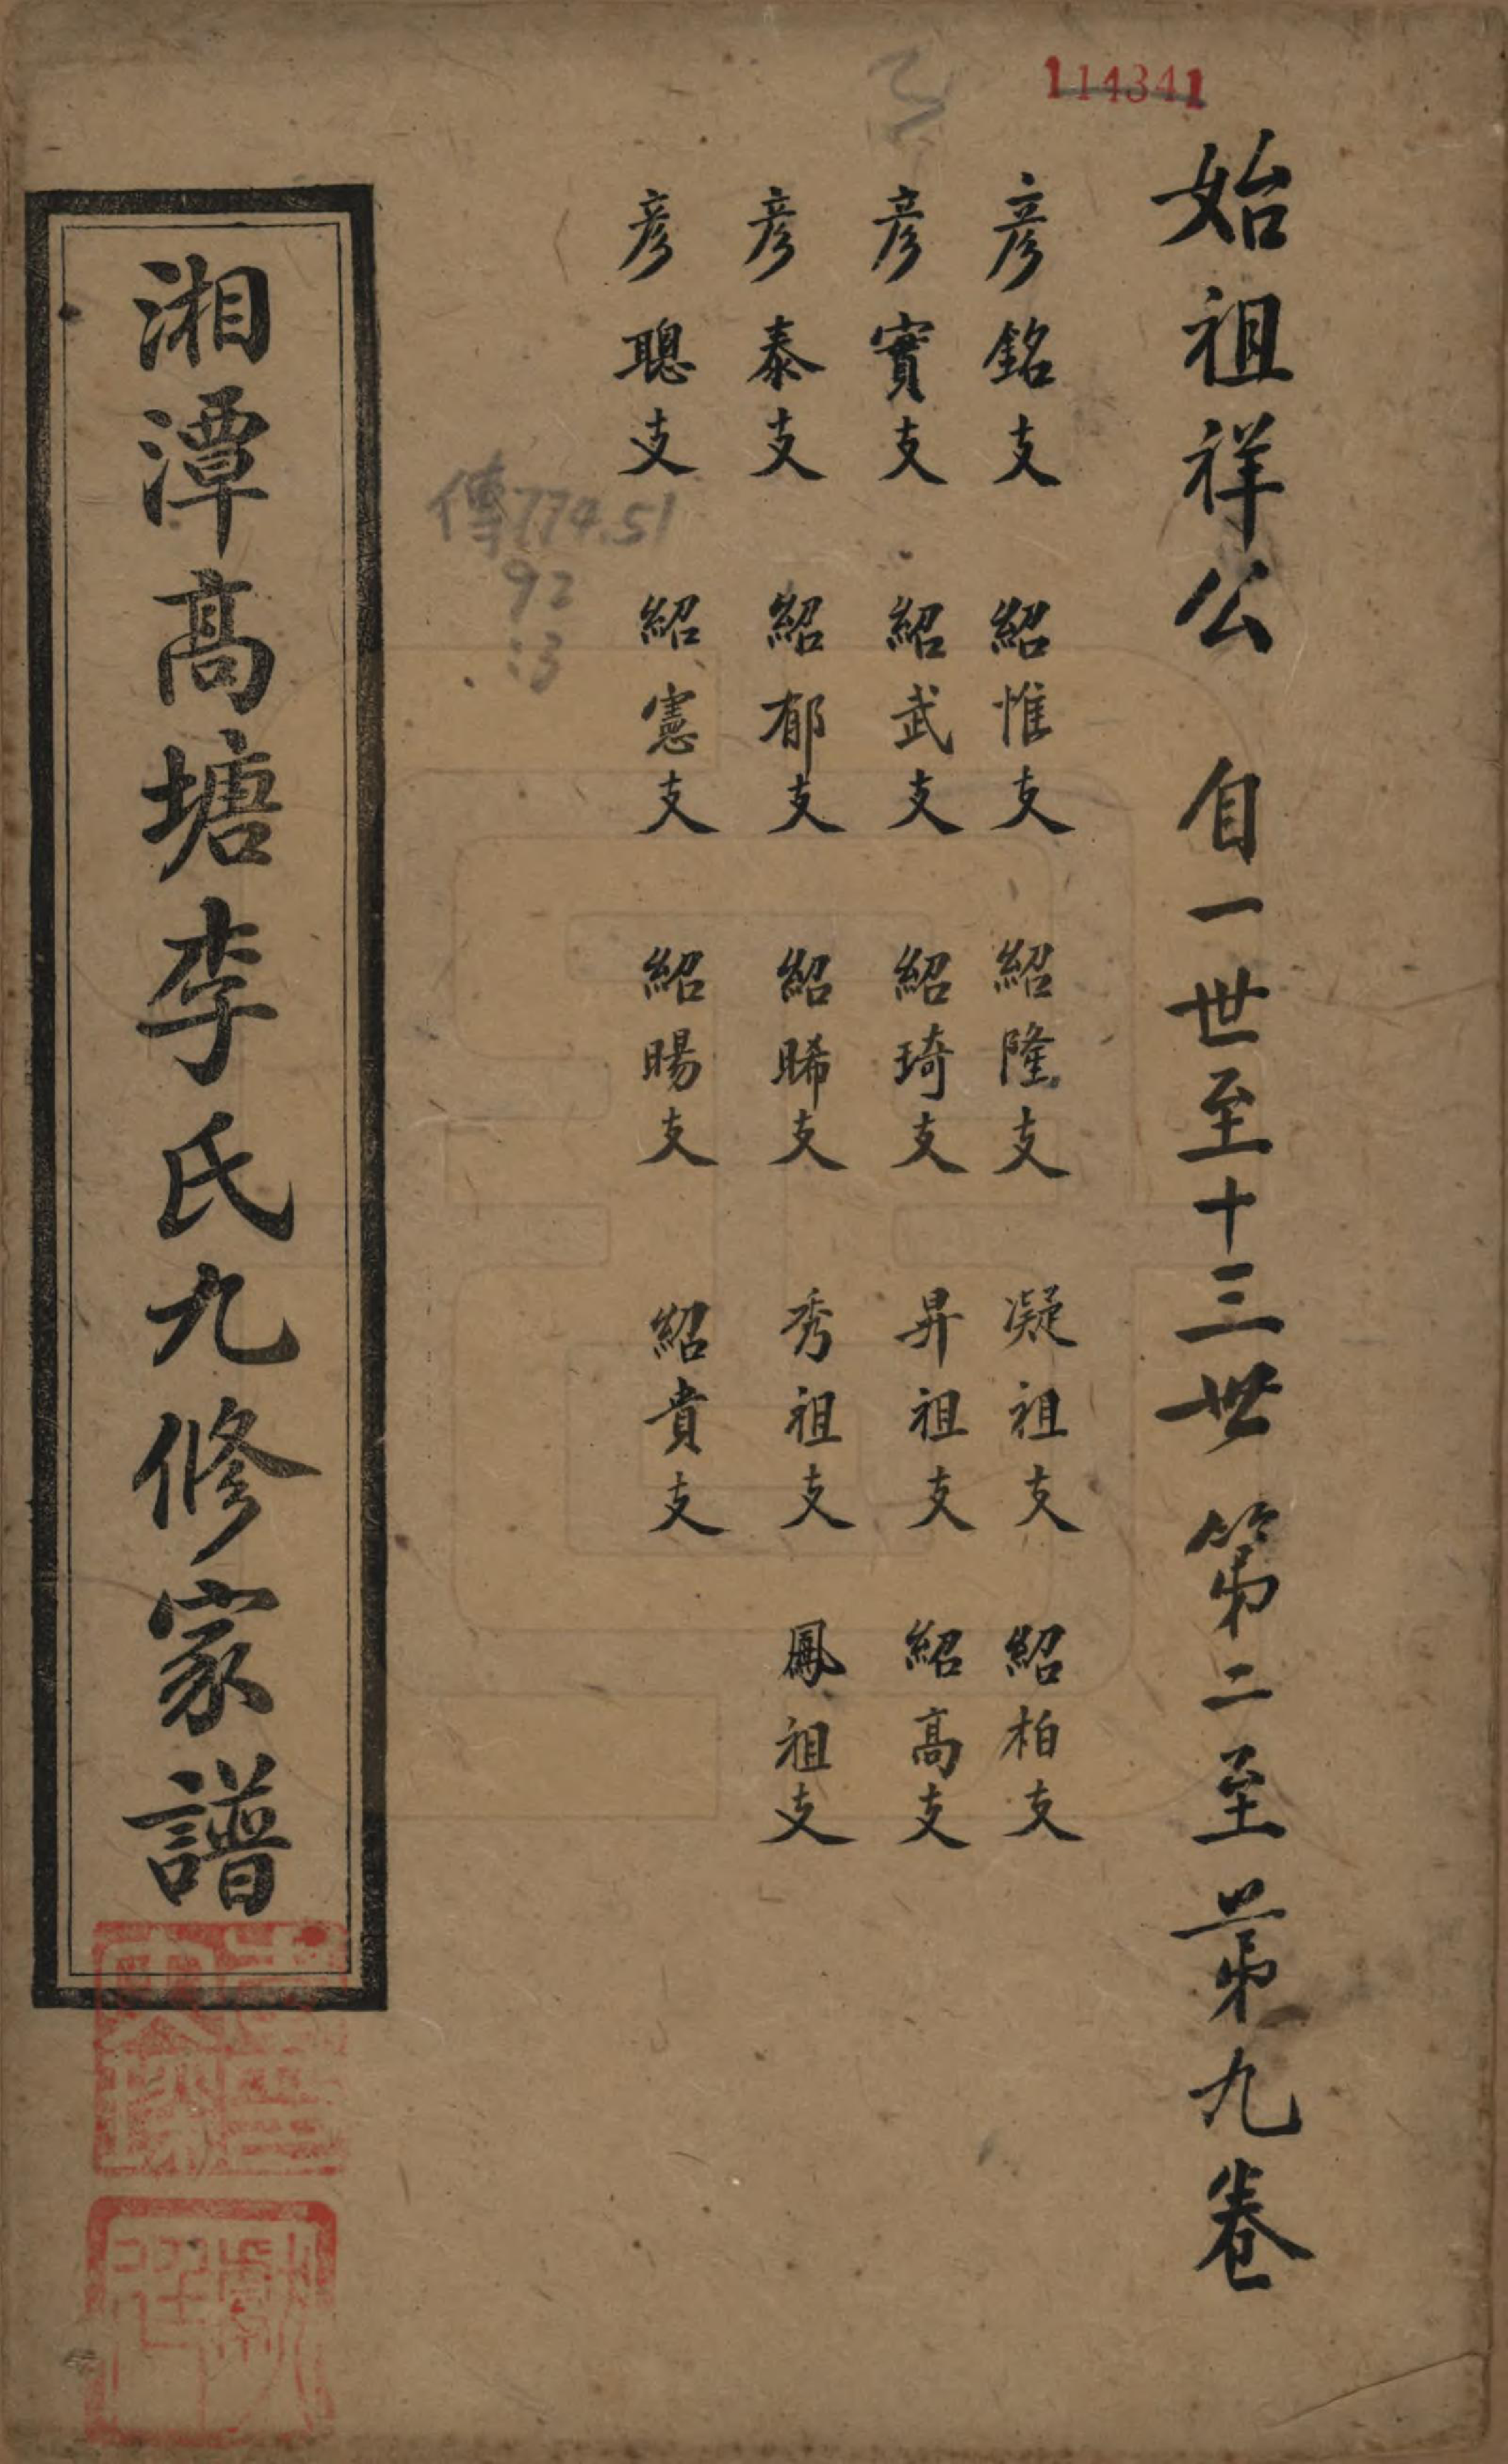 114341
始祖祥公 自一世至十三世 第二至第九卷
彦銘支 紹惟支 紹隆支 凝祖支 紹柏支
彦實支 紹武支 紹琦支 昇祖支 紹高支
彦泰支 紹郁支 紹晞支 秀祖支 鳳祖支
彦聰支 紹憲支 紹暘支 紹貴支
傳774.51
92
:13
湘潭高塘李氏九修家譜